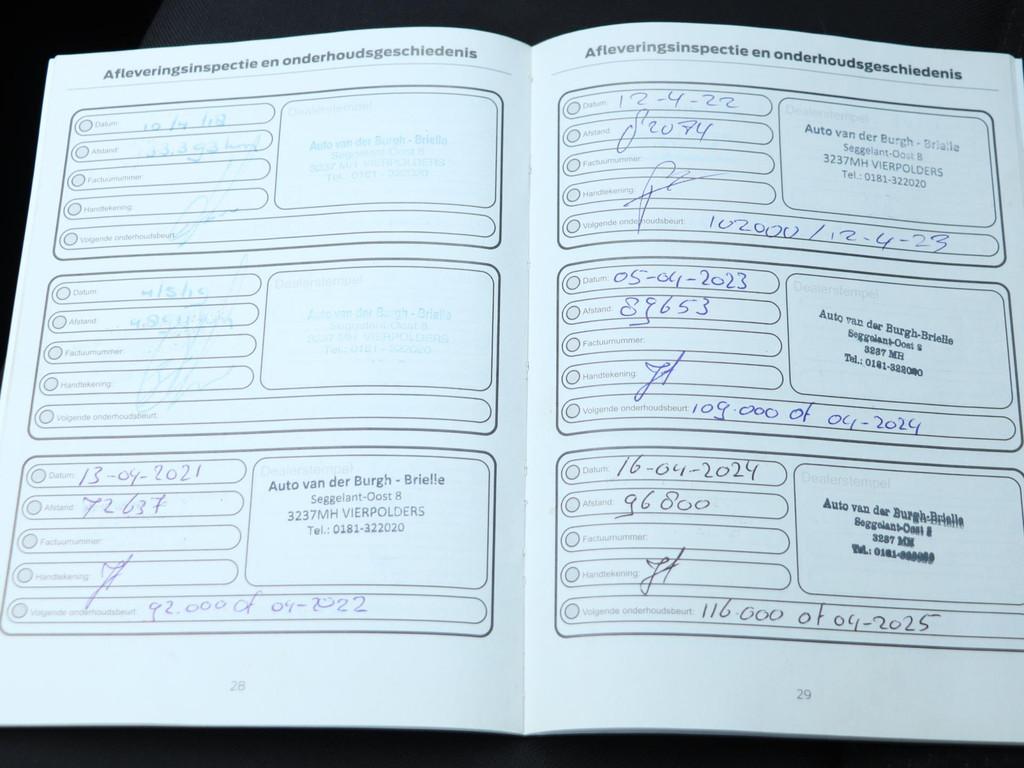 Afleveringsinspectie en onderhoudsgeschiedenis
Datum: 10/4/18
Afstand:
Factuurnummer:
Handtekening:
Volgende onderhoudsbeurt:
Dealerstempel
Auto van der Burgh - Brielle
Seggelant-Oost 8
3237MH VIERPOLDERS
Tel.: 0181-322020
Datum:
Afstand:
Factuurnummer:
Handtekening:
Volgende onderhoudsbeurt:
Dealerstempel
Auto van der Burgh - Brielle
Seggelant-Oost 8
3237MH VIERPOLDERS
Tel.: 0181 - 322020
Datum: 13-04-2021
Afstand: 72637
Factuurnummer:
Handtekening:
Volgende onderhoudsbeurt: 92.000 of 04-2022
Dealerstempel
Auto van der Burgh - Brielle
Seggelant-Oost 8
3237MH VIERPOLDERS
Tel.: 0181-322020
28
Afleveringsinspectie en onderhoudsgeschiedenis
Datum: 12-4-22
Afstand:
Factuurnummer:
Handtekening:
Volgende onderhoudsbeurt: 102000 / 12-4-23
Dealerstempel
Auto van der Burgh - Brielle
Seggelant-Oost 8
3237MH VIERPOLDERS
Tel.: 0181-322020
Datum: 05-04-2023
Afstand: 89653
Factuurnummer:
Handtekening:
Volgende onderhoudsbeurt: 109.000 of 04-2024
Dealerstempel
Auto van der Burgh-Brielle
Seggelant-Oost 8
3237 MH
Tel.: 0181-322020
Datum: 16-04-2024
Afstand: 96800
Factuurnummer:
Handtekening:
Volgende onderhoudsbeurt: 116.000 of 04-2025
Dealerstempel
Auto van der Burgh-Brielle
Seggelant-Oost 8
3237 MH
Tel.:
29